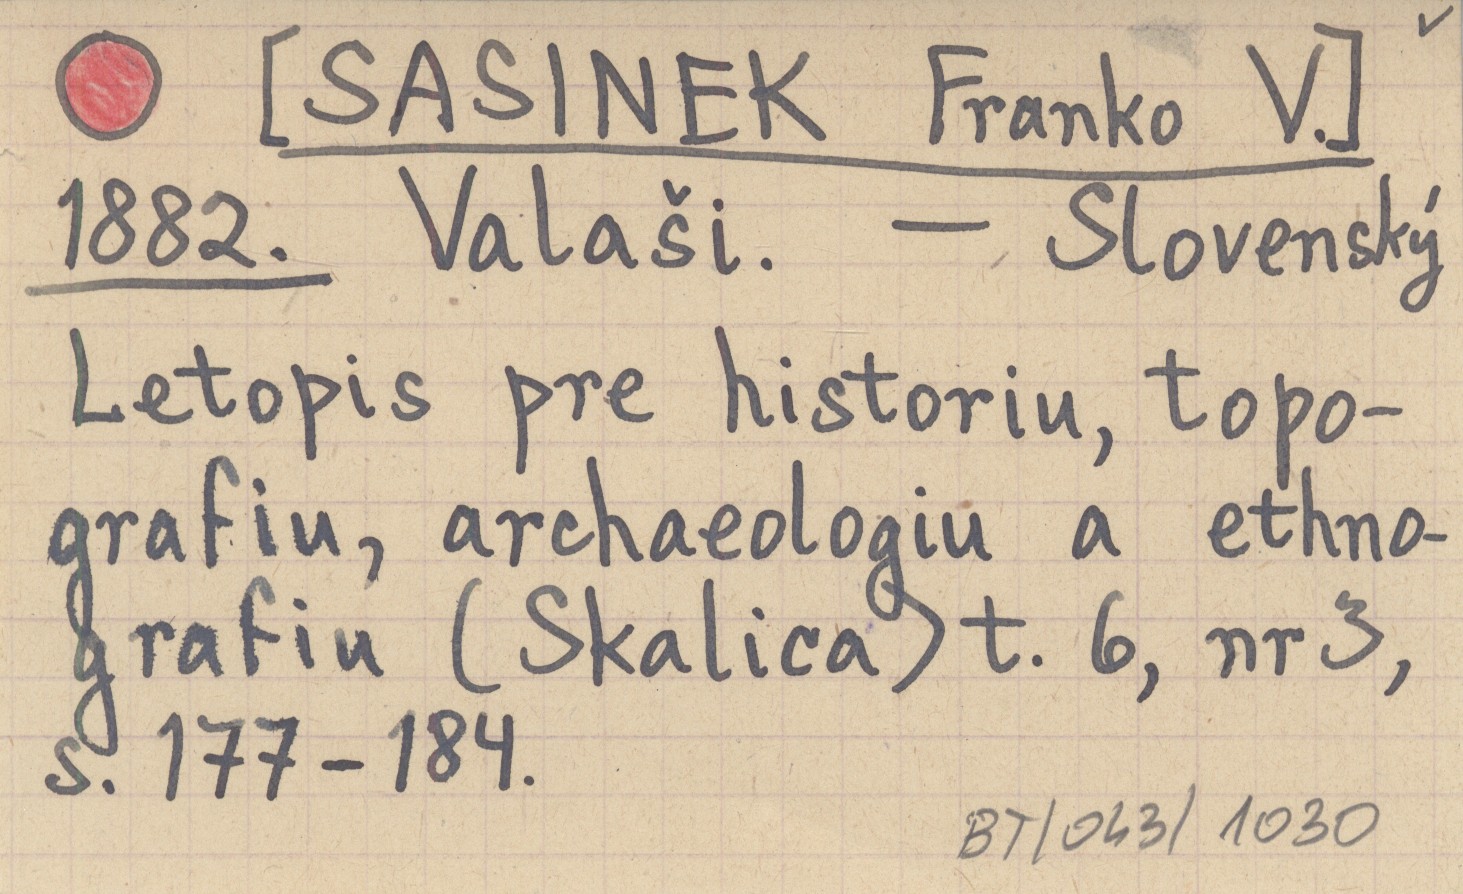 [SASINEK Franko V.]
1882. Valaši. — Slovenský
Letopis pre historiu, topo-
grafiu, archaeologiu a ethno-
grafiu (Skalica) t. 6, nr 3,
s. 177-184.
BT/043/1030